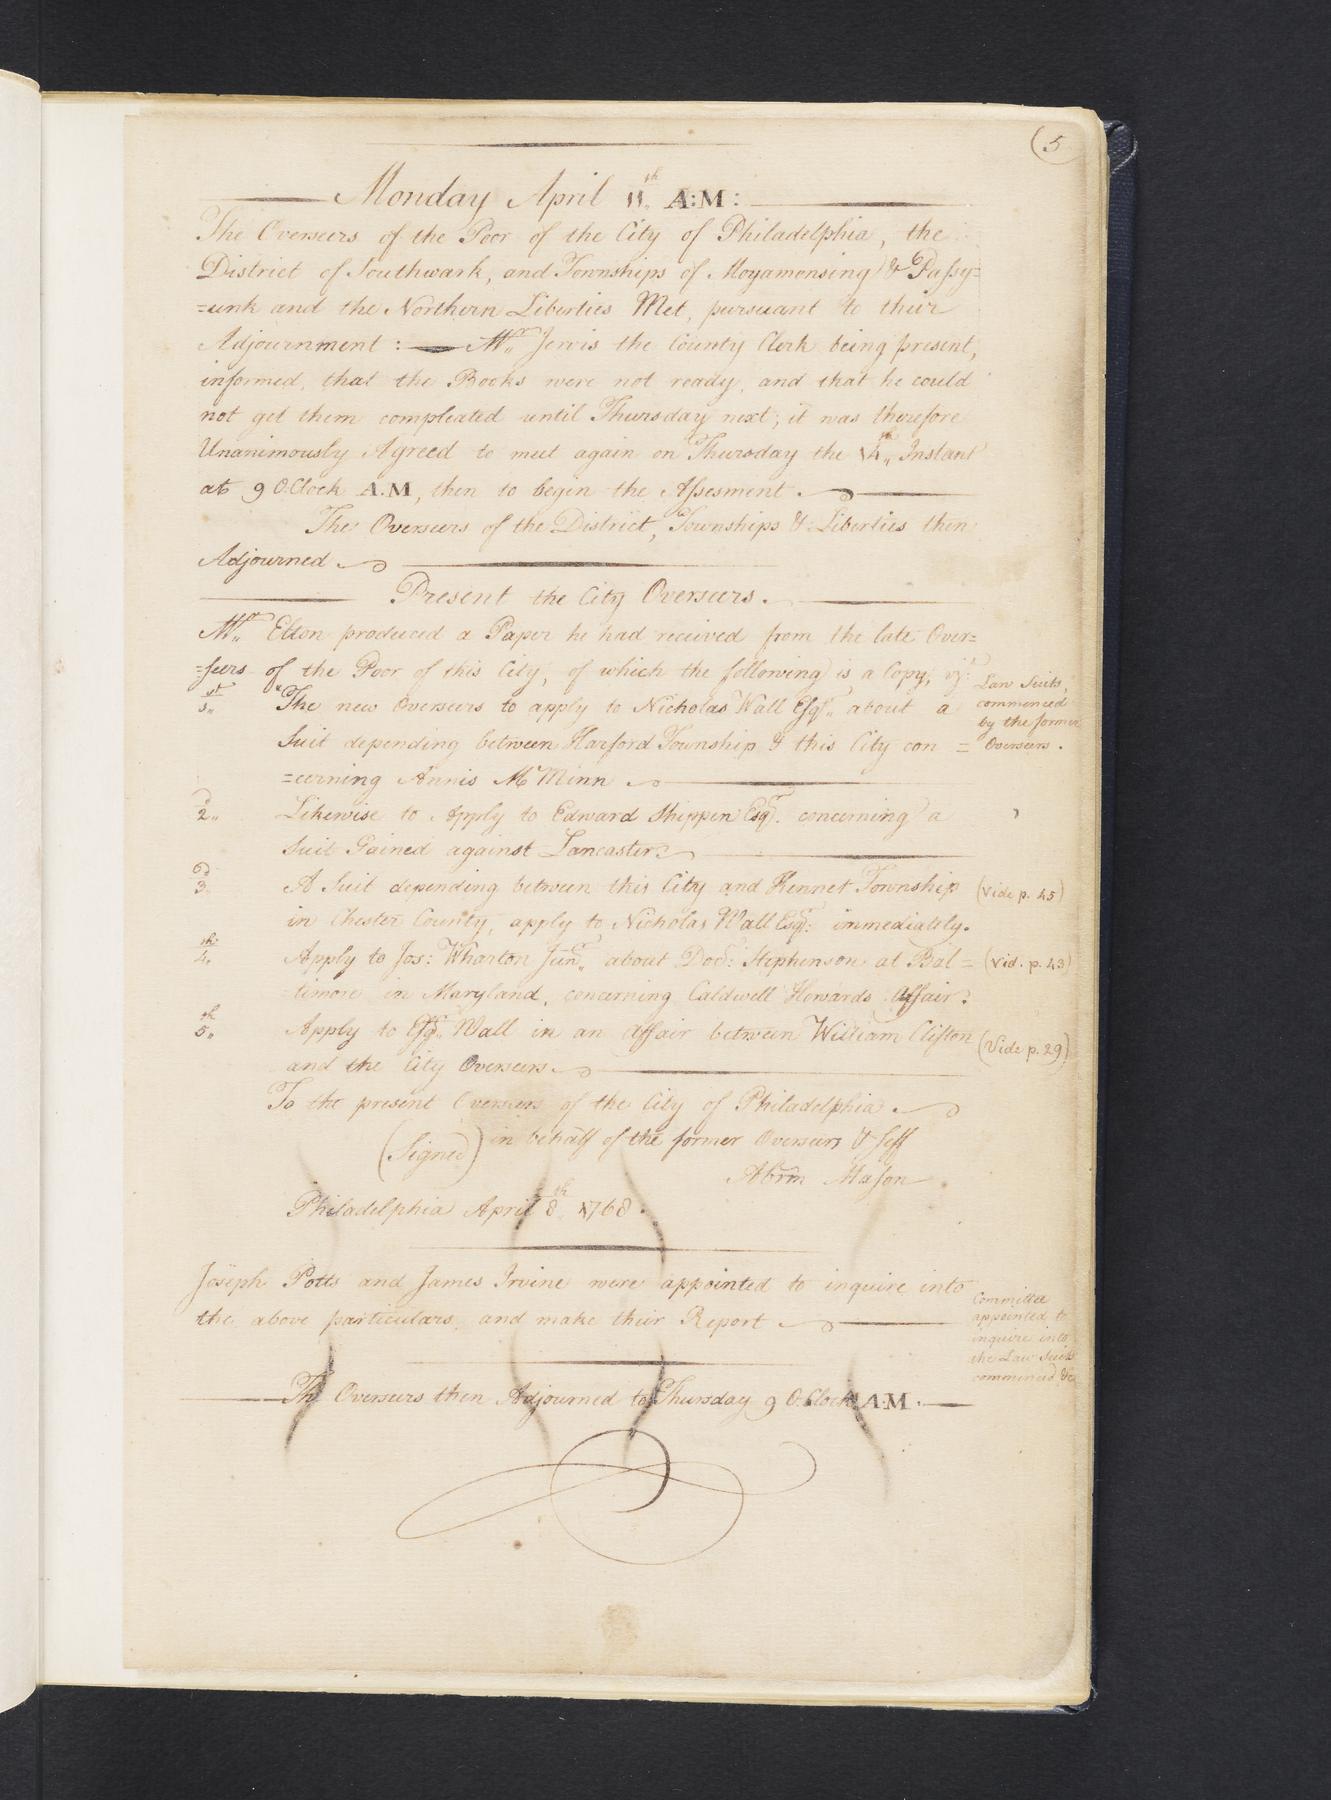 (5
Monday April 11th A:M:
The Overseers of the Poor of the City of Philadelphia, the
District of Southwark, and Townships of Moyamensing & Passy=
=unk and the Northern Liberties Met, pursuant to their
Adjournment:— Mr. Jervis the County Clerk being present,
informed, that the Books were not ready, and that he could
not get them compleated until Thursday next; it was therefore
Unanimously Agreed to meet again on Thursday the 14th Instant
at 9 O.Clock A.M, then to begin the Assesment.
The Overseers of the District, Townships & Liberties then
Adjourned
Present the City Overseers.
Mr. Elton produced a Paper he had received from the late Over=
=seers of the Poor of this City, of which the following is a Copy, vizt
Law Suits,
commenced
by the former
Overseers.
1st "The new Overseers to apply to Nicholas Wall Esqr. about a
Suit depending between Harford Township & this City con=
=cerning Annis McMinn
2d Likewise to Apply to Edward Shippen Esqr. concerning a
Suit Gained against Lancaster
3d A Suit depending between this City and Kennet Township (Vide p. 45)
in Chester County, apply to Nicholas Wall Esqr: immediately.
4th Apply to Jos: Wharton Junr. about Docr: Stephenson at Bal= (Vid. p. 43)
timore in Maryland, concerning Caldwell Howards Affair.
5th Apply to Esqr. Wall in an Affair between William Clifton (Vide p. 29)
and the City Overseers
To the present Overseers of the City of Philadelphia.
(Signed) in behalf of the former Overseers & Self
Abrm Mason
Philadelphia April 8th 1768.
Joseph Potts and James Irvine were appointed to inquire into
the above particulars, and make their Report
Committee
appointed to
inquire into
the Law Suits
commenced &c
The Overseers then Adjourned to Thursday 9 O.Clock A.M.